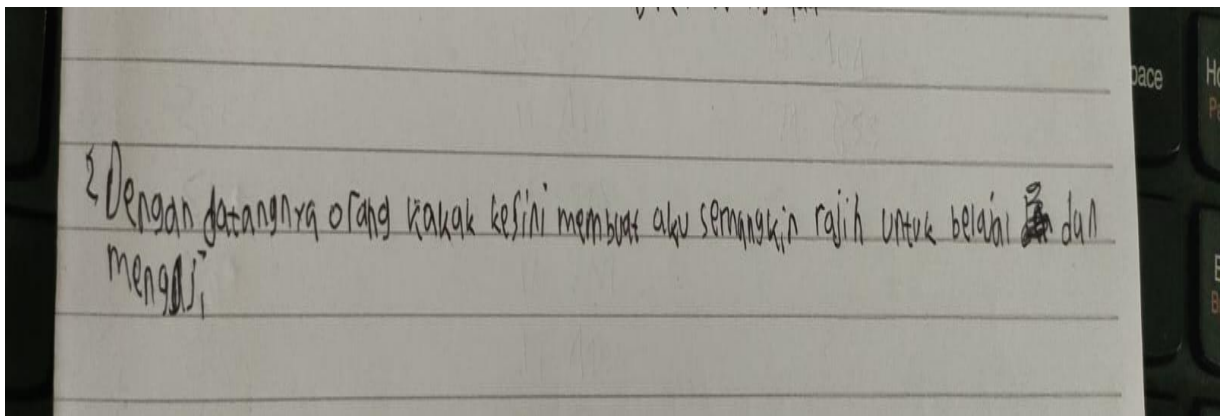 2 Dengan datangnya orang kakak kesini membuat aku semangkin rajin untuk belajar dan
mengaji
pace